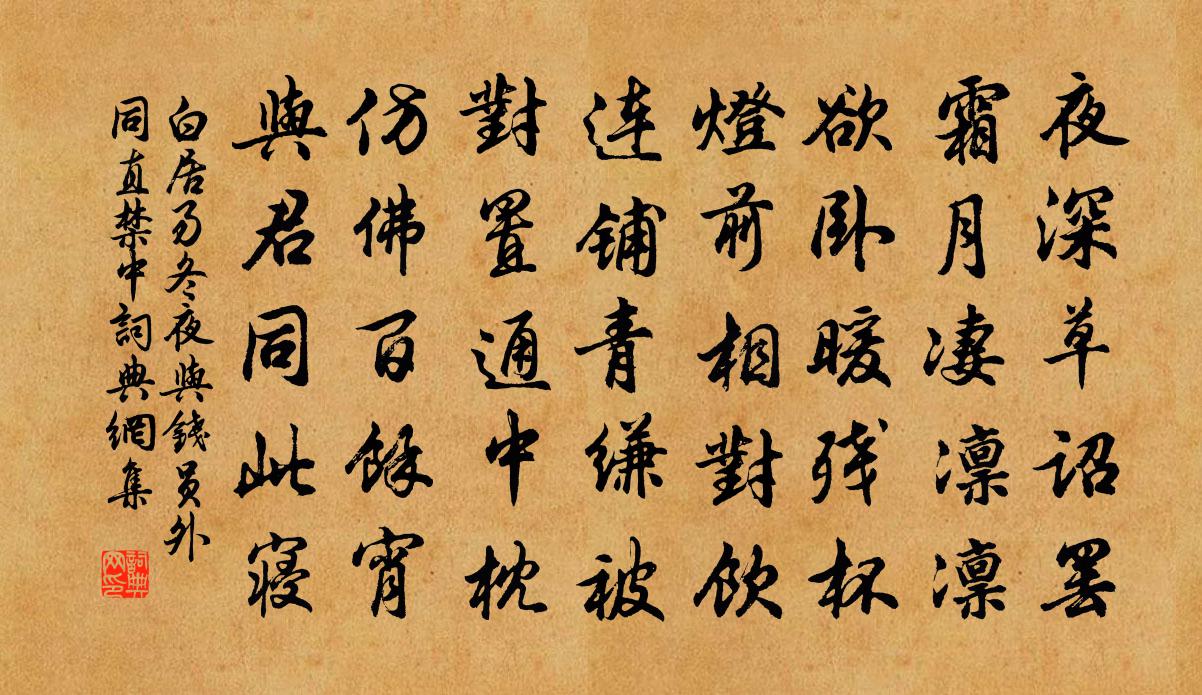 夜深草詔罷
霜月凄凛凛
欲卧暖残杯
燈前相對飲
连铺青縑被
對置通中枕
仿佛百餘宵
與君同此寝
白居易冬夜與錢員外
同直禁中詞典網集
詞典网印